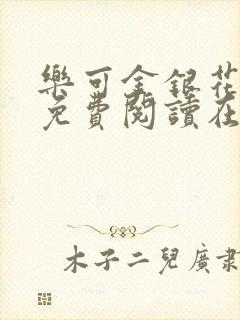 樂可金銀花
免費閱讀在
木子二兒廣肅